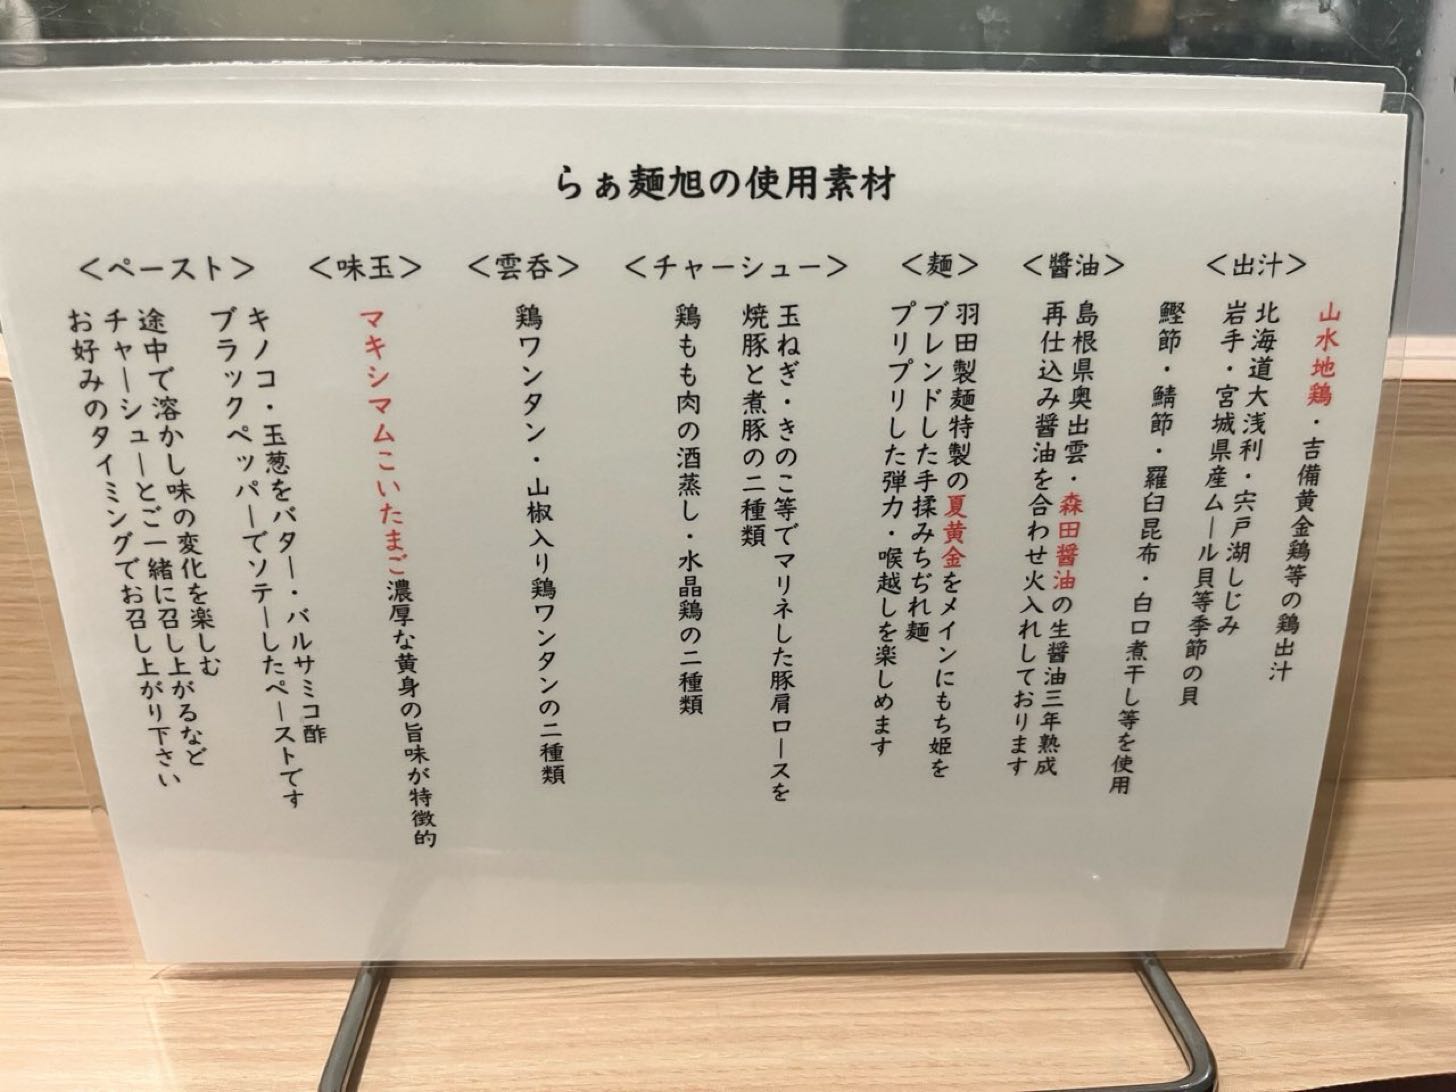 らぁ麺旭の使用素材
＜出汁＞
山水地鶏・吉備黄金鶏等の鶏出汁
北海道大浅利・宍戸湖しじみ
岩手・宮城県産ムール貝等季節の貝
鰹節・鯖節・羅臼昆布・白口煮干し等を使用
＜醬油＞
島根県奥出雲・森田醤油の生醤油三年熟成
再仕込み醤油を合わせ火入れしております
＜麺＞
羽田製麺特製の夏黄金をメインにもち姫を
ブレンドした手揉みちぢれ麺
プリプリした弾力・喉越しを楽しめます
＜チャーシュー＞
玉ねぎ・きのこ等でマリネした豚肩ロースを
焼豚と煮豚の二種類
鶏もも肉の酒蒸し・水晶鶏の二種類
＜雲呑＞
鶏ワンタン・山椒入り鶏ワンタンの二種類
＜味玉＞
マキシマムこいたまご濃厚な黄身の旨味が特徴的
＜ペースト＞
キノコ・玉葱をバター・バルサミコ酢
ブラックペッパーでソテーしたペーストです
途中で溶かし味の変化を楽しむ
チャーシューとご一緒に召し上がるなど
お好みのタイミングでお召し上がり下さい